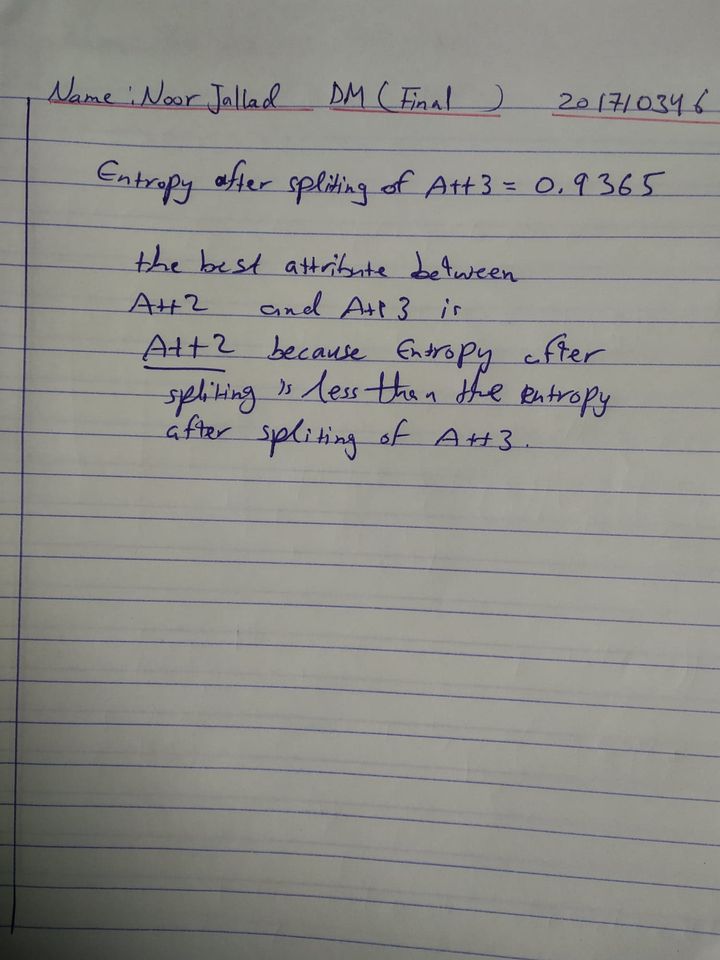 Name: Noor Jallad DM (Final ) 201710346
Entropy after spliting of Att3 = 0.9365
the best attribute between
Att2 and Att3 is
Att2 because Entropy after
spliting is less than the entropy
after spliting of Att3.